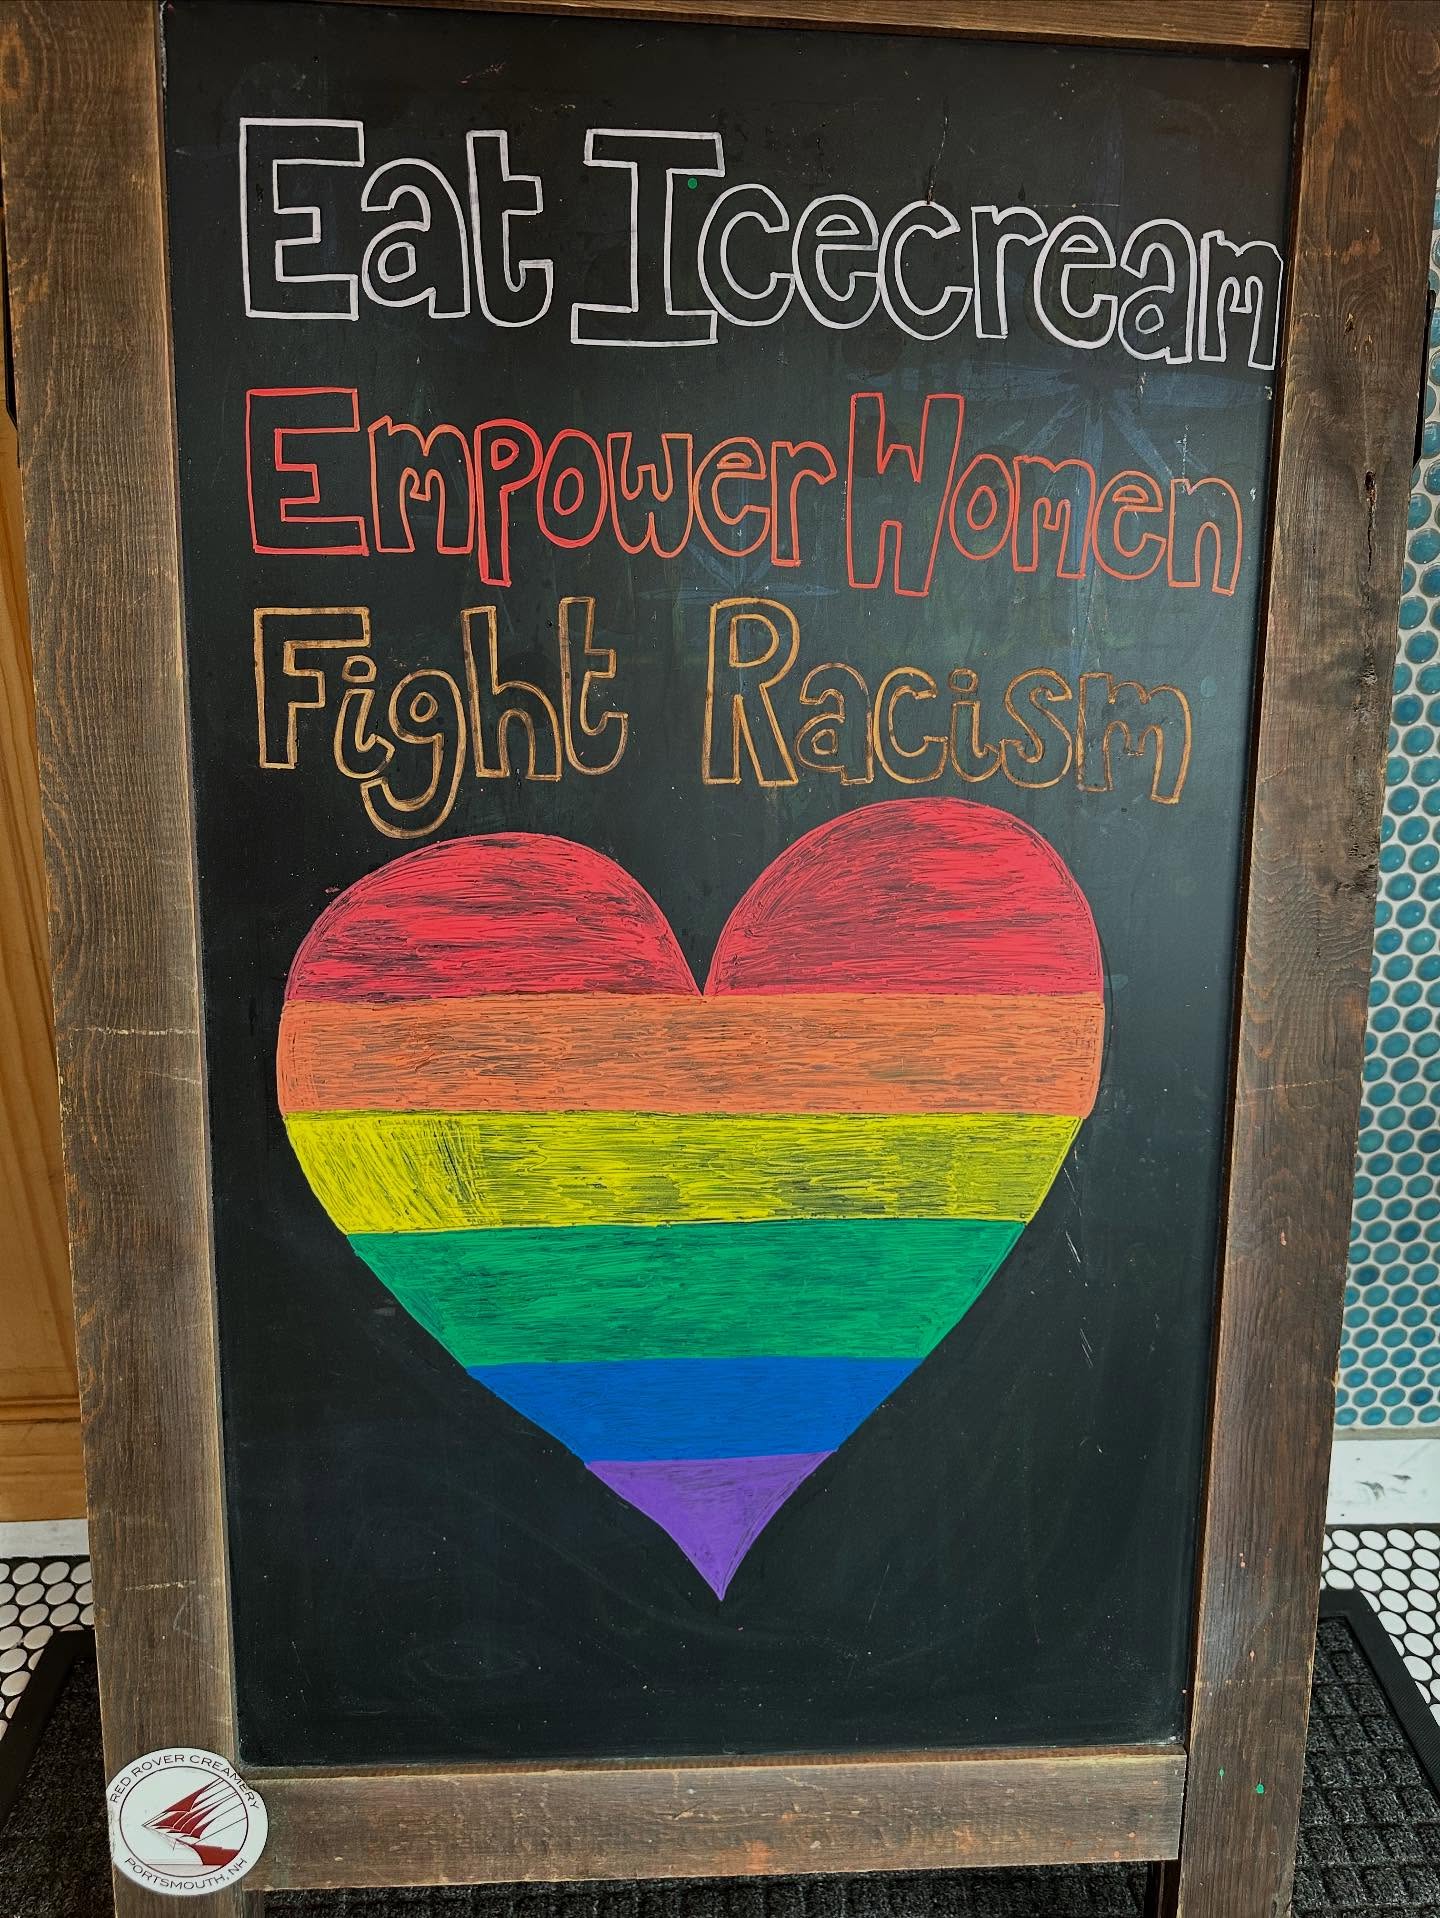 Eat Icecream
Empower Women
Fight Racism
RED ROVER CREAMERY
PORTSMOUTH, NH